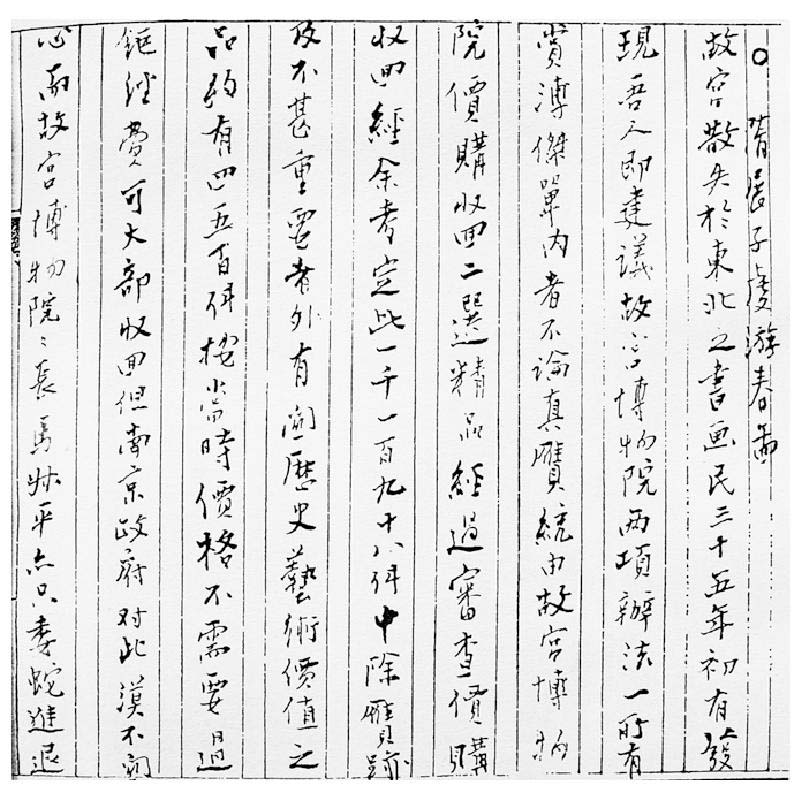 隋展子虔游春啚
故宫散失於東北之書画民三十五年初有發
現吾人即建議故宫博物院两項辦法一所有
賞溥傑單内者不論真贋統由故宫博物
院價購收囬二選精品經過審查價購
收囬經余考定此一千一百九十八件中除贋跡
及不甚重要者外有關歷史藝術價值之
品約有四五百件按當時價格不需要過
鉅經費可大部收囬但南京政府对此漠不関
心而故宫博物院〻長馬叔平亦只委蛇進退